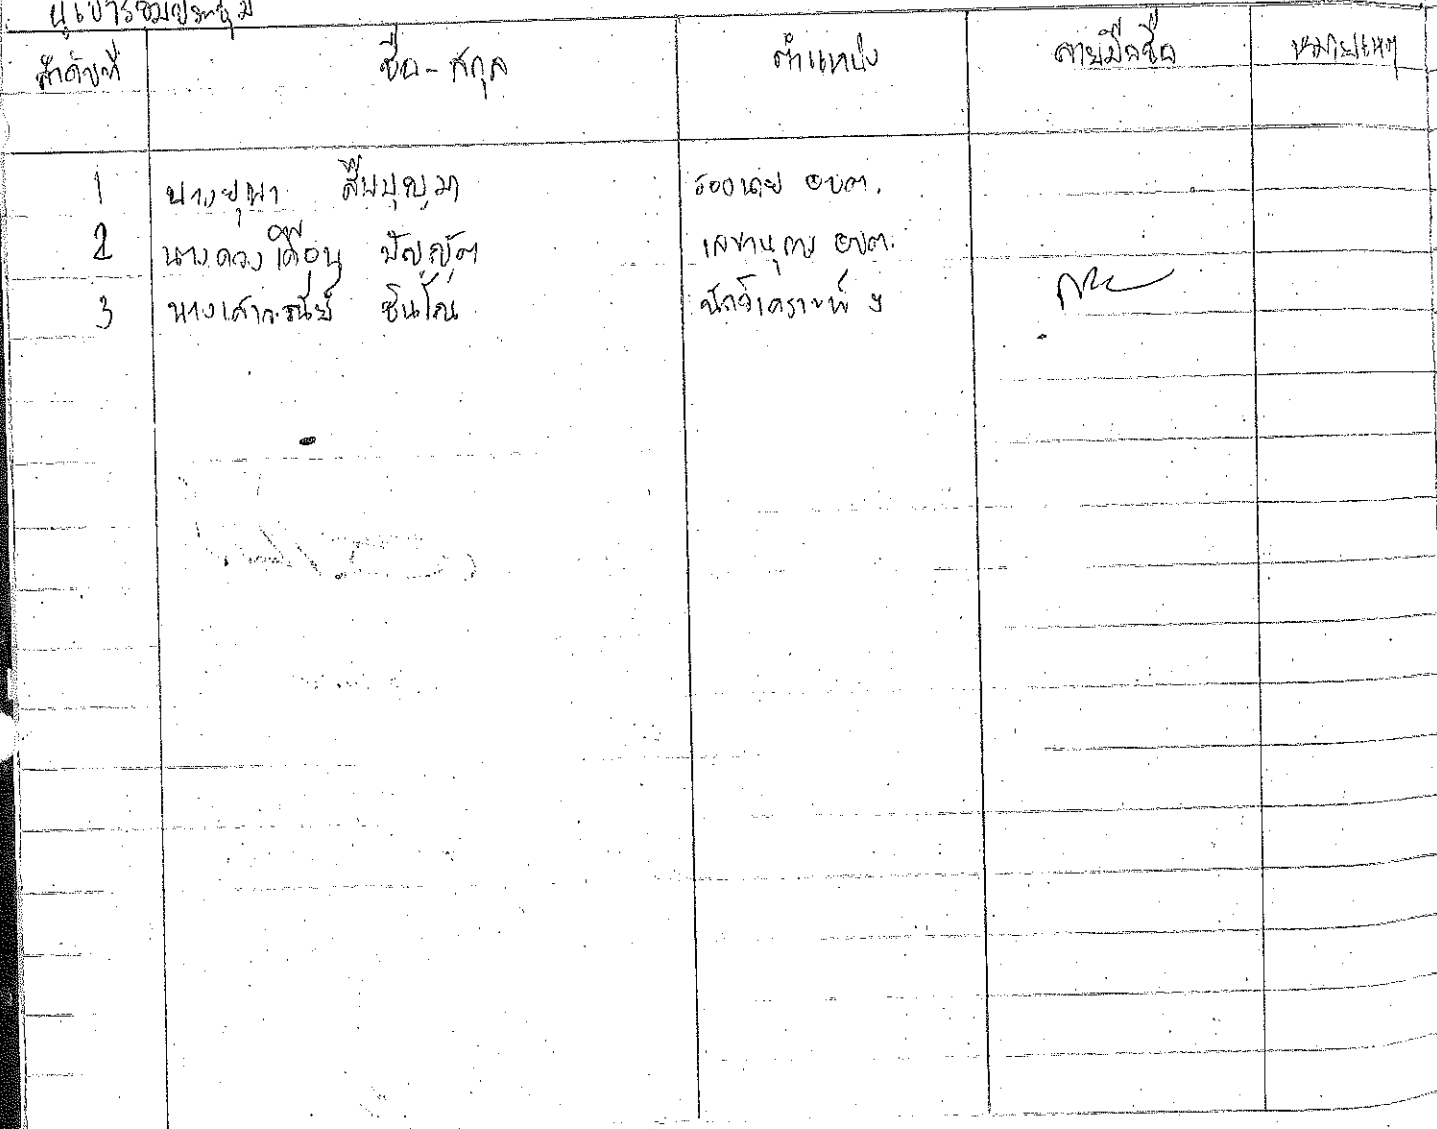 ผู้เข้าร่วมประชุม
ลำดับที่ ชื่อ - สกุล ตำแหน่ง ลายมือชื่อ หมายเหตุ
1 นางยุพา สืบบุญมา รองนายก อบต.
2 นางดวงเดือน บัญญัติ เลขานุการ อบต.
3 นางเสาวรณีย์ ชินโณ นักวิเคราะห์ ฯ